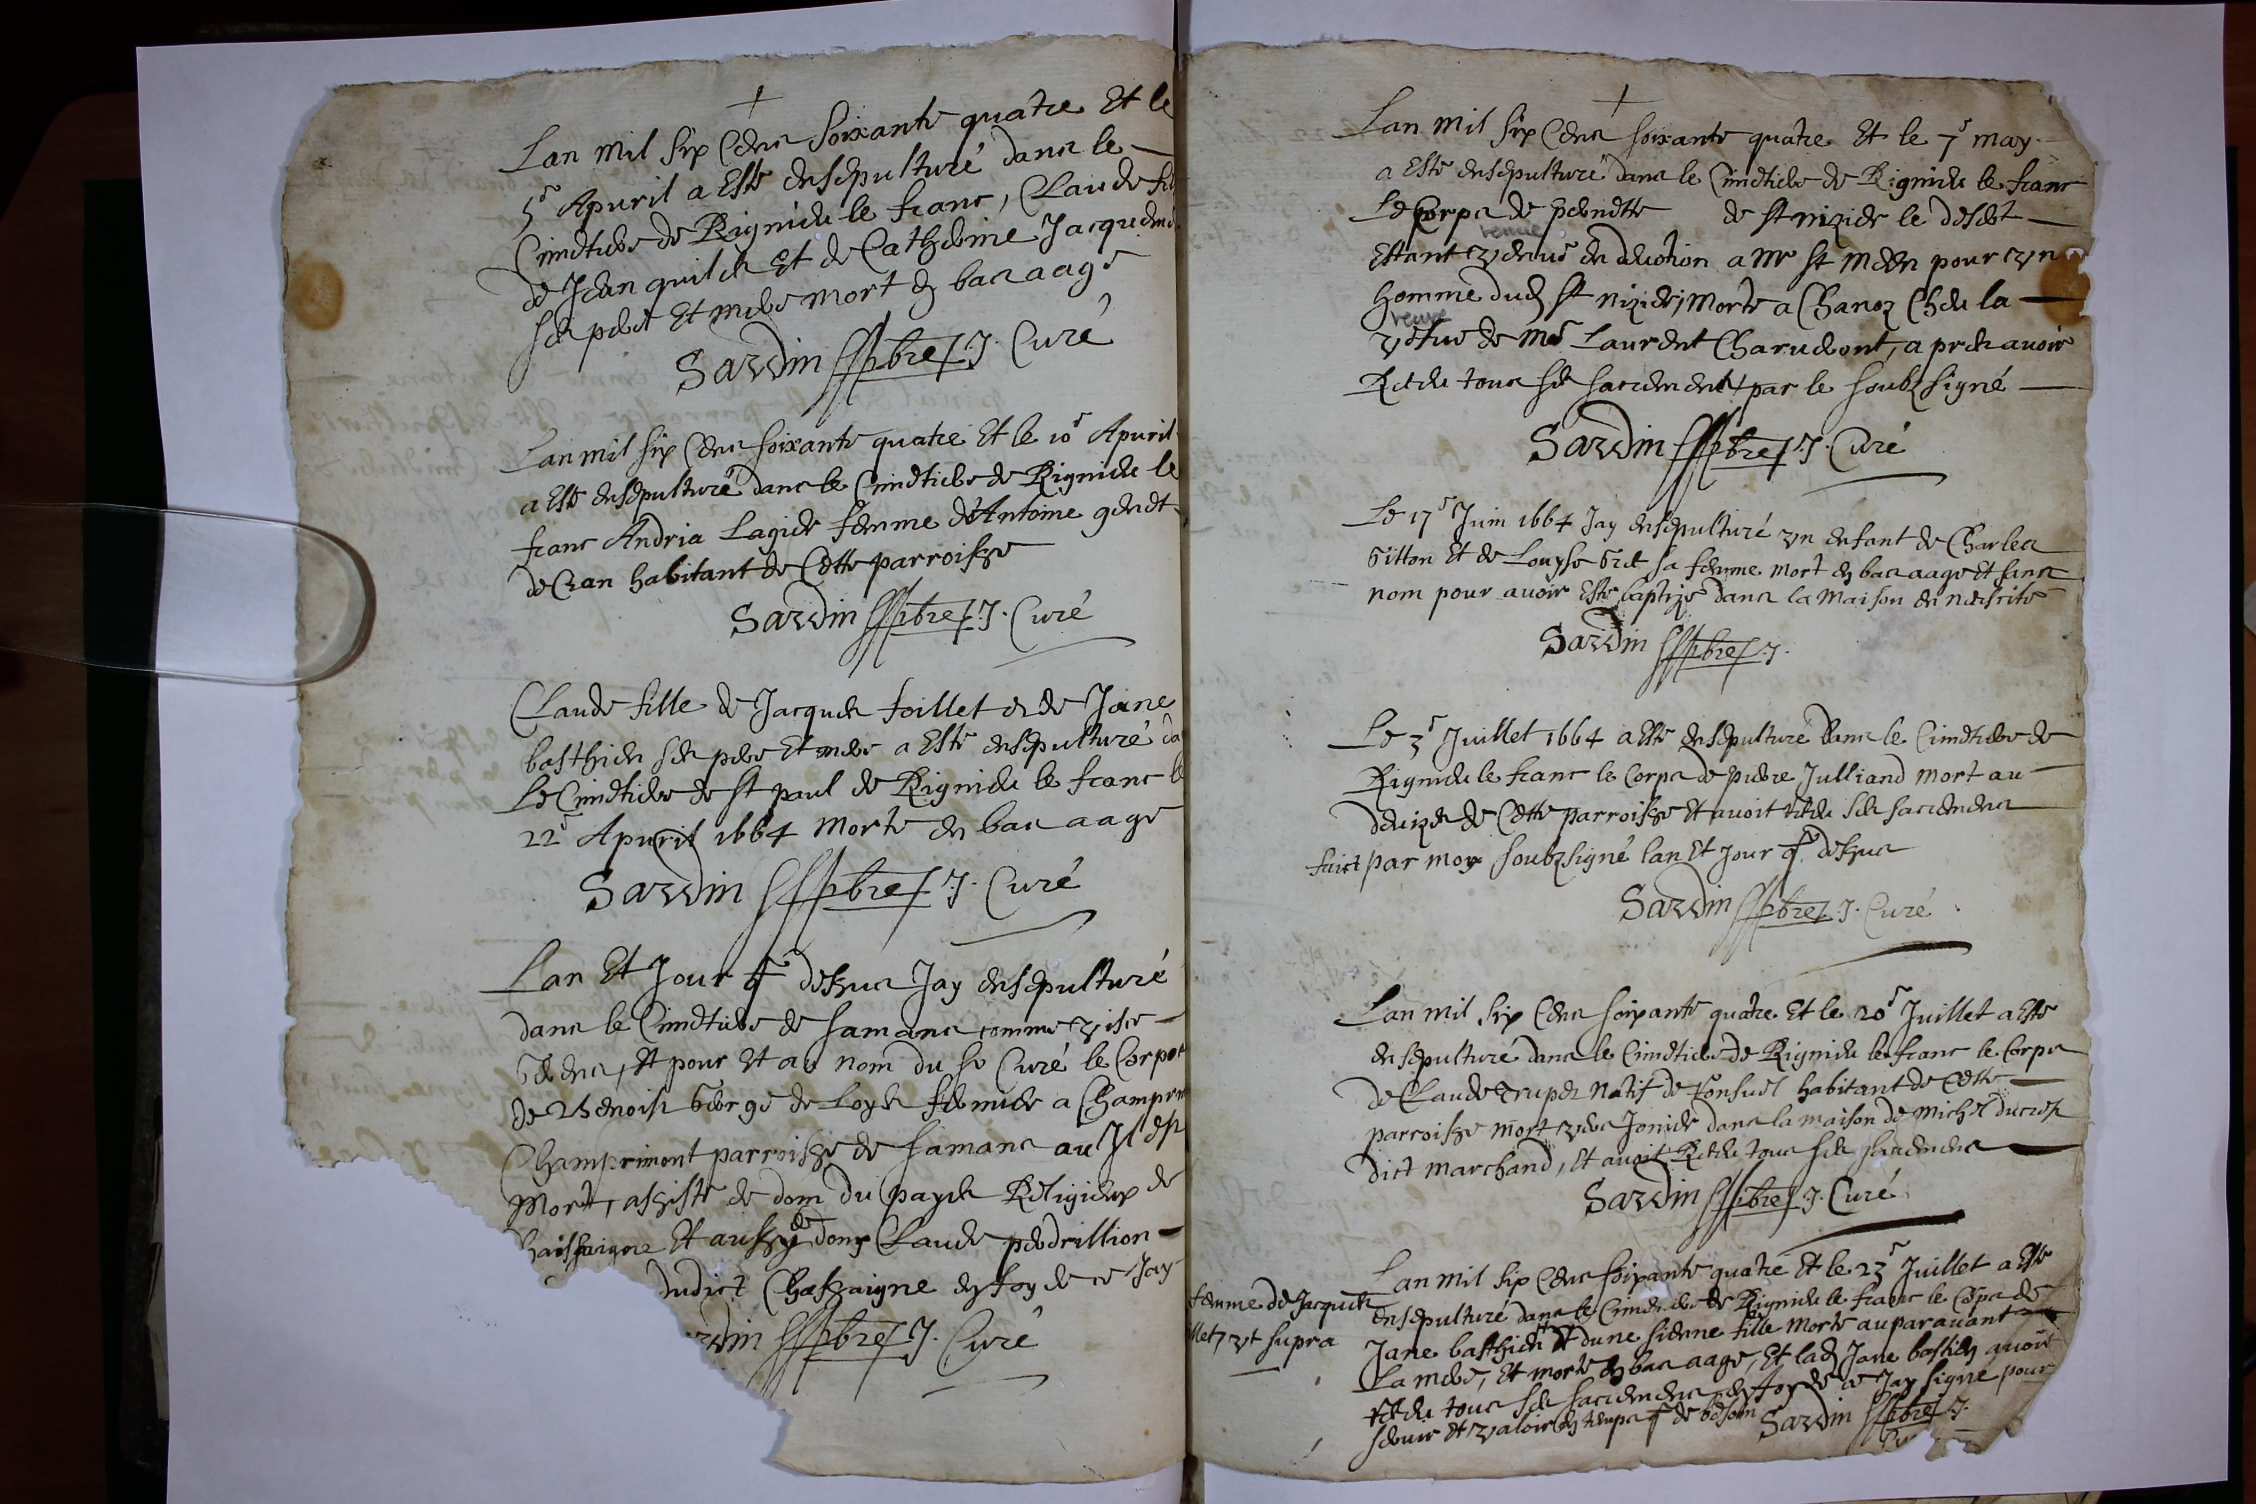 Lan mil six Cens soixante quatre Et le
5e Apuril a Esté ensepulturé dans le
Cimetiere de Rignieu le franc, Claude fil
de Jean quiles Et de Catherine Jacqueme
ses pere Et mere mort en bas aage
Sardin pbre J. Curé
Lan mil six Cens soixante quatre Et le 10e Apuril
a Esté ensepulturé dans le Cimetiere de Rignieu le
franc Andria Lagier femme d'Antoine genet
de Cran habitant de Cette parroisse
Sardin pbre J. Curé
Claude fille de Jacques foillet et de Jane
basthien ses pere Et mere a Esté ensepulturé da
Le Cimetiere de st paul de Rignieu le franc le
22e Apuril 1664 morte en bas aage
Sardin pbre J. Curé
Lan Et Jour q dessus Jay ensepulturé
dans le Cimetiere de samans comme visce
gerens, et pour Et au nom du sr Curé le Corps
de Benoist George de Loyes fermier a Champrem
Champrimont parroisse de samans au Jl est
Mort, assisté de dom du payes Religieux de
Et aussy de dom Claude perdrillion
dudict Chassaigne en foy de ce Jay
din pbre J. Curé
Lan mil six Cens soixante quatre Et le 7e may
a Esté ensepulturé dans le Cimetiere de Rignieu le franc
Le Corps de pernette de st nizier le desert
venue
Estant venue en devotion a Mr st Meen pour vn
homme dud st nizier, Morte a Chanoz Chez la
veuve
vefue de Me Laurent Charueront, apres auoir
Receu tous ses sacremens par le soubz signé
Sardin pbre J. Curé
Le 17e Juin 1664 Jay ensepulturé vn enfant de Charles
Gitton Et de Louyse Gret sa femme mort en bas aage Et sans
nom pour auoir Esté baptizé dans la maison en necessité
Sardin pbre J.
Le 3e Juillet 1664 a Esté ensepulturé dans le Cimetiere de
Rignieu le franc le Corps de pierre Julliand mort au
de Cette parroisse Et auoit receu ses sacremens
faict par moy soubzsigné lan Et Jour q dessus
Sardin pbre J. Curé
Lan mil six Cens soixante quatre Et le 20e Juillet a Esté
ensepulturé dans le Cimetiere de Rignieu le franc le Corps
de Claude Trupet Natif de habitant de Cette
parroisse mort dans la maison de michel ducrest
dict marchand, Et auoit Receu tous ses sacremens
Sardin pbre J. Curé
Lan mil six Cens soixante quatre Et le 23e Juillet a Esté
femme de Jacques
ensepulturé dans le Cimetiere de Rignieu le franc le Corps de
llet, vt supra
Jane basthien Et dune sienne fille morte auparauant
La mere, Et morte en bas aage, Et lad Jane bastien auoit
receu tous ses sacremens en foy de ce Jay signe pour
seruir Et valoir en temps q de besoin Sardin pbre J.